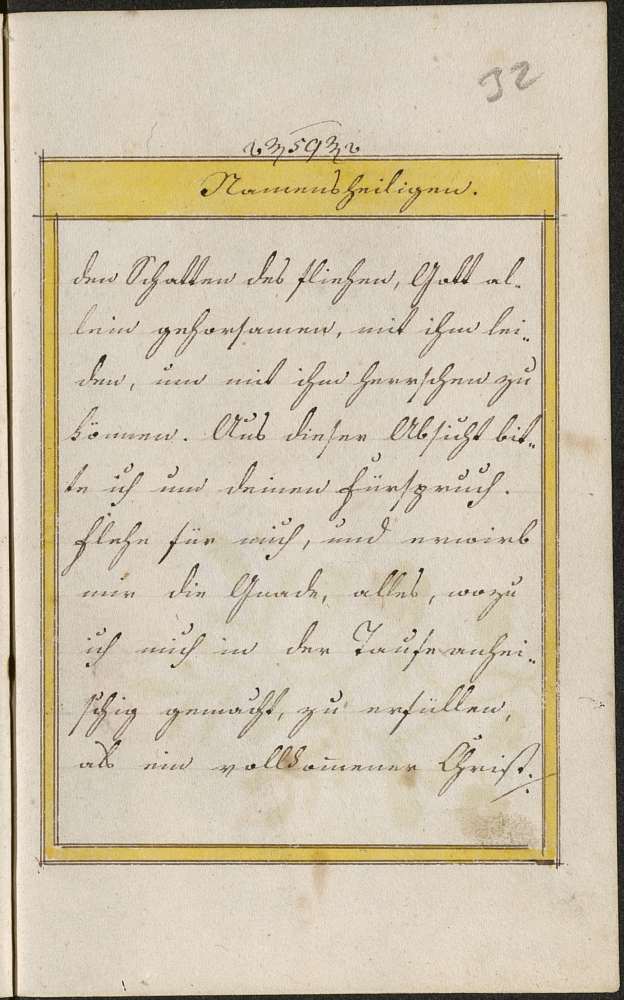 32
59
Namensheiligen.
den Schatten des fliehen, Gott al-
lein gehorsamen, mit ihm lei-
den, um mit ihm herrschen zu
können. Aus dieser Absicht bit-
te ich um deinen Fürspruch.
Flehe für mich, und erwirb
mir die Gnade, alles, wozu
ich mich in der Taufe anhei-
schig gemacht, zu erfüllen,
als ein vollkom̄ener Christ.